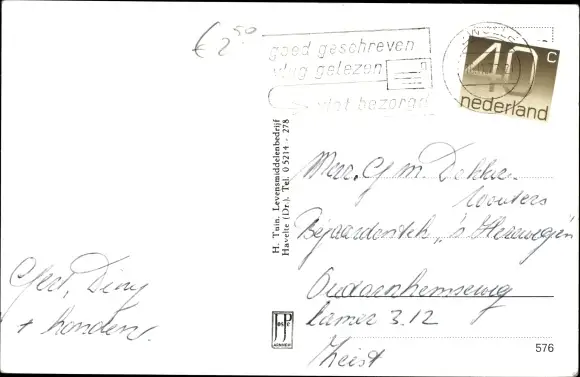 € 2,50
goed geschreven
vlug gelezen
vlot bezorgd
40 c
nederland
H. Tuin, Levensmiddelenbedrijf
Havelte (Dr.), Tel. 05214 - 278
Mevr. G M. Dekker
Wouters
Bejaardenteh. "'s Herewegen"
Oudarnhemseweg
kamer 312
Zeist
Gert, Diny
+ honden.
JosPé
ARNHEM
576